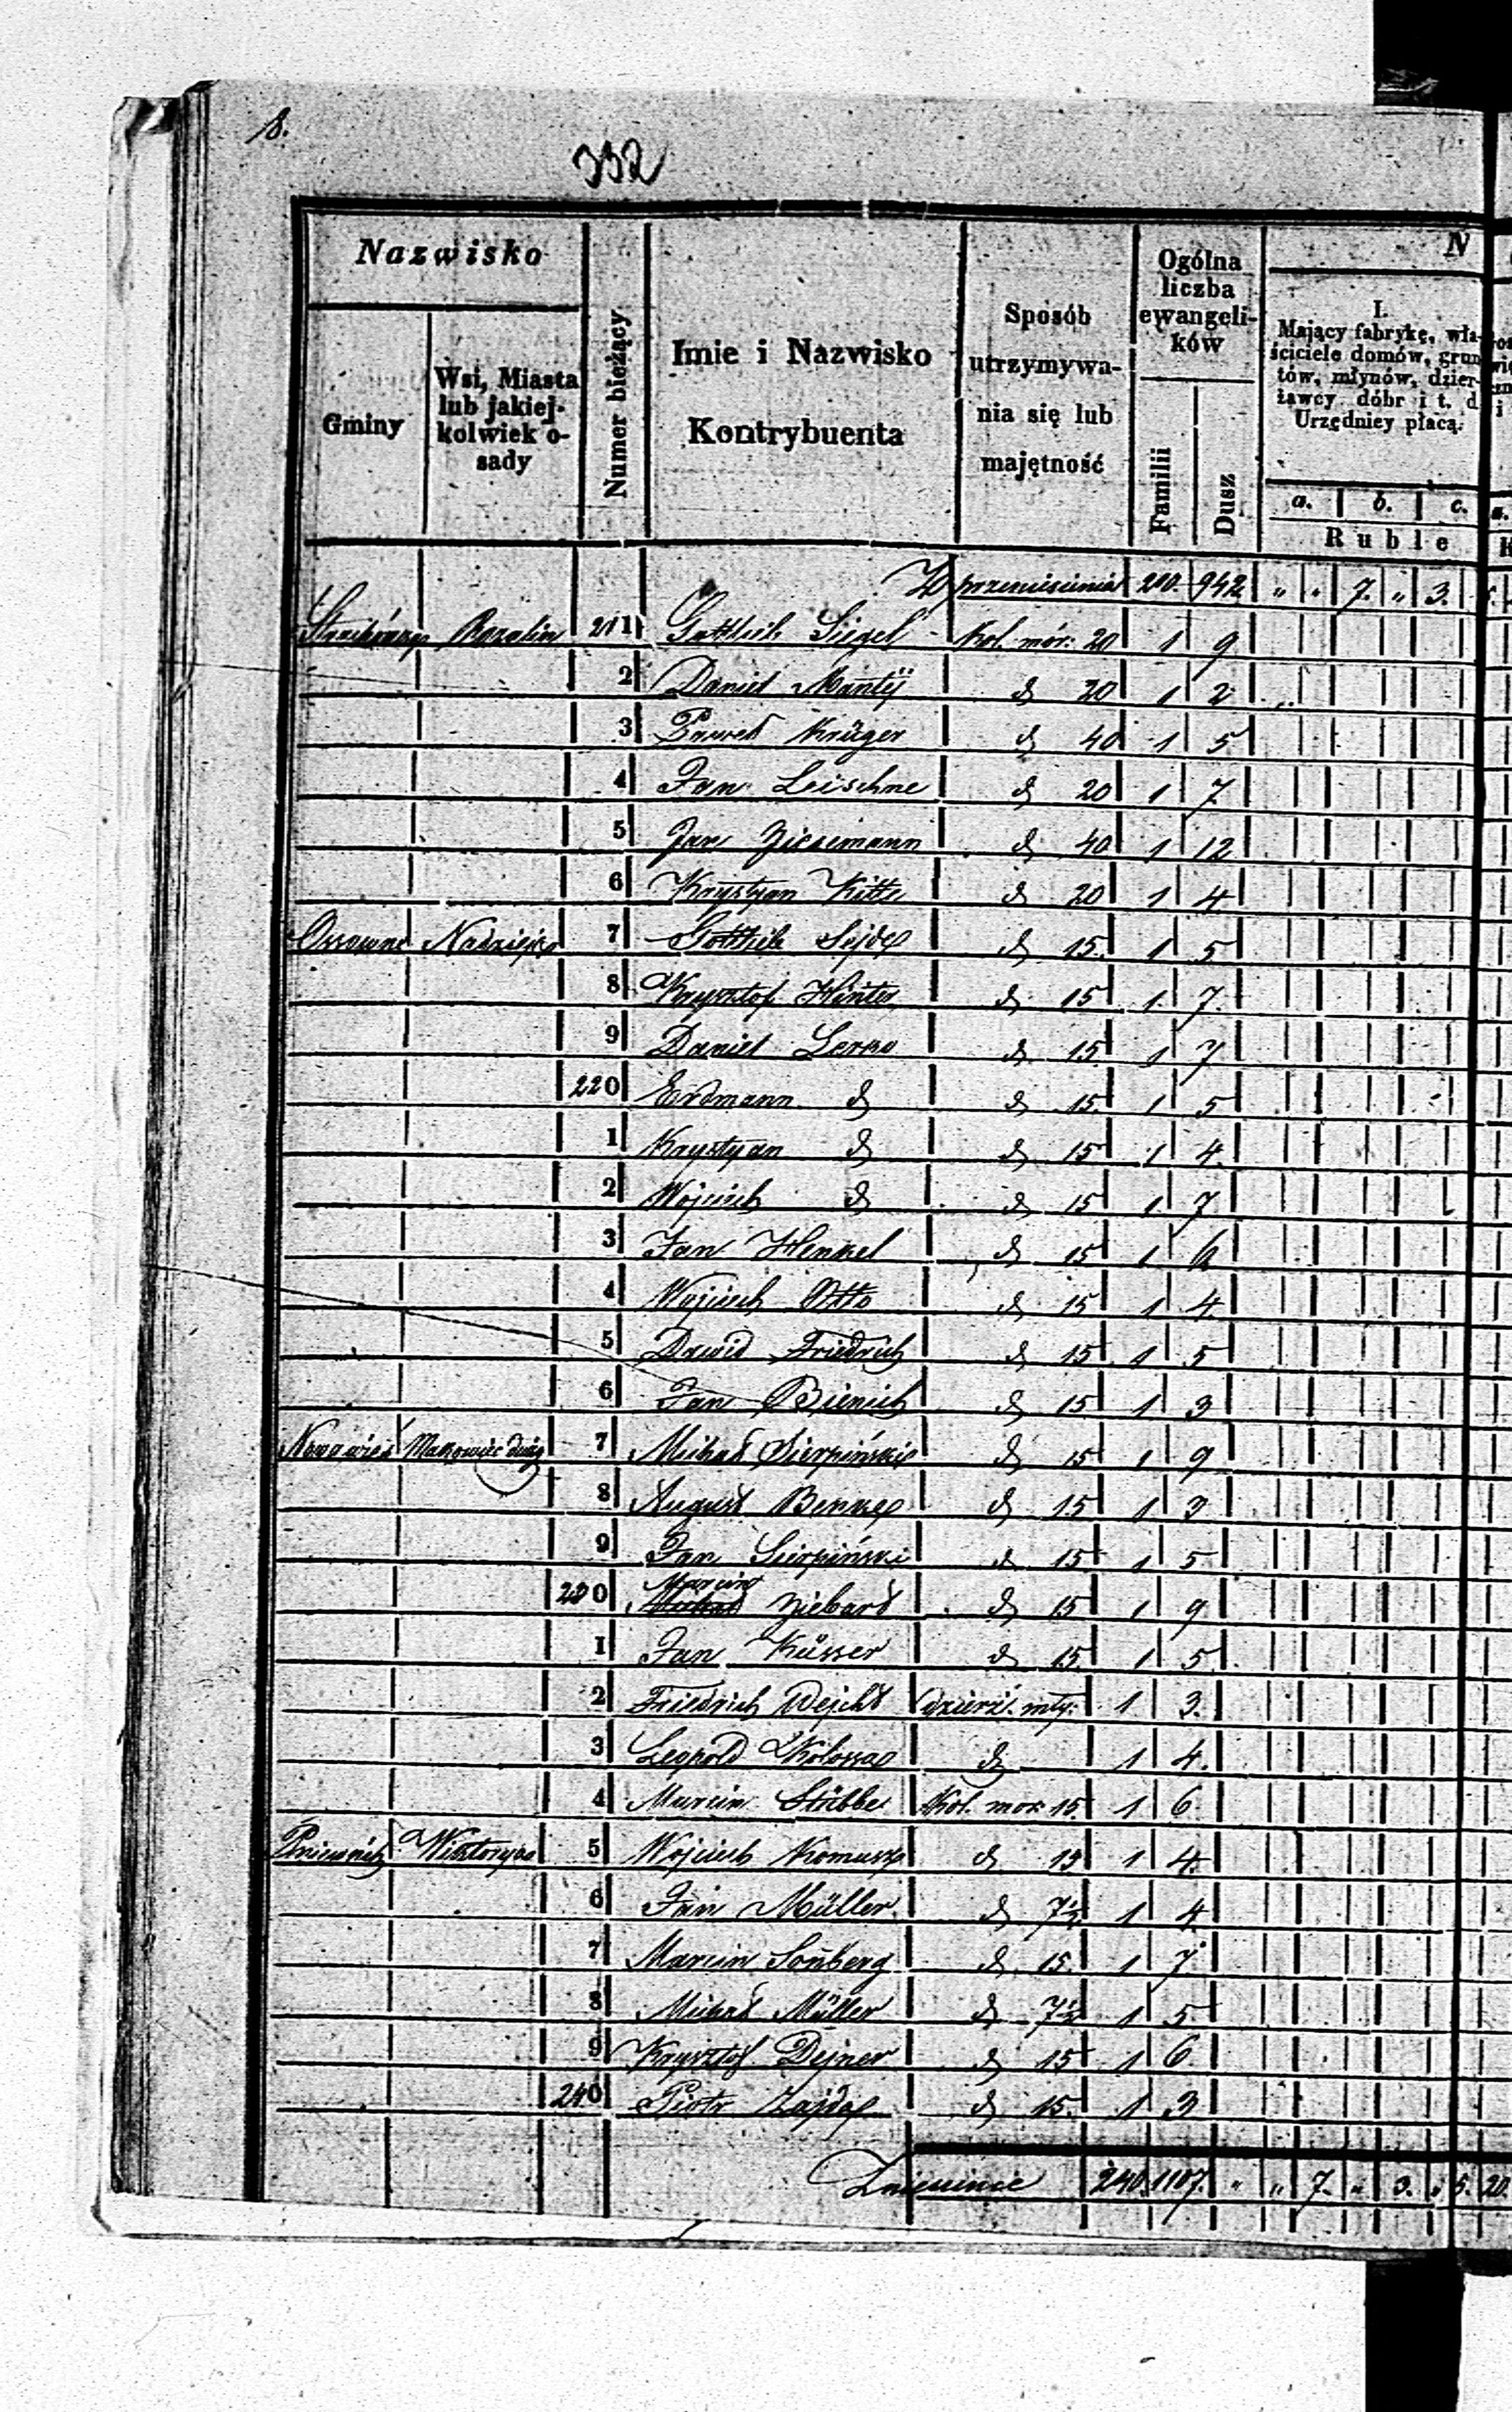 8.
332
Nazwisko
Gminy
Wsi, Miasta
lub jakiej-
kolwiek o-
sady
Numer bieżący
Imie i Nazwisko
Kontrybuenta
Sposób
utrzymywa-
nia się lub
majętność
Ogólna
liczba
ewangeli-
ków
Familii
Dusz
N
I.
Mający fabrykę, wła-
ściciele domów, grun
tów, młynów, dzier-
żawcy dóbr i t. d
Urzędnicy płacą.
a. b. c.
Ruble
Z przeniesienia 210. 942 " " 7. " 3.
Rozalin 211 Gottlieb Siegel Kol. mór: 20 1 9
2 Daniel Manteÿ d 20 1 2
3 Paweł Krüger d 40 1 5
4 Jan Leischne d 20 1 7
5 Jan Ziesemann d 40 1 12
6 Krystyan Kitte d 20 1 4
Ossowno Nadzieja 7 Gottlieb Sejdel d 15. 1 5
8 Krysztof Winter d 15 1 7.
9 Daniel d 15 1 7
220 Erdmann d d 15. 1 5
1 Krystyan d d 15 1 4.
2 Wojciech d d 15 1 7
3 Jan Henkel d 15 1 6
4 Wojciech Otto d 15 1 4.
5 Dawid Friedrich d 15 1 5
6 Jan Bienich d 15 1 3
Nowa wieś Makowiec duży 7 Michał Sierpiński d 15 1 9
8 August Benke d 15 1 3
9 Jan Sierpiński d 15 1 5
230 Marcin Ziebard d 15 1 9
1 Jan Küsser d 15 1 5
2 Friedrich Wejcht dzierż. mły. 1 3.
3 Leopold d 1 4.
4 Marcin Stübbe Kol. mor 15. 1 6
Pniewnik Wiktorya 5 Wojciech d 15 1 4.
6 Jan Müller d 7½ 1 4
7 Marcin Sonberg d 15. 1 7
8 Michał Müller d 7½ 1 5
9 Krysztof Dejner d 15 1 6
240 Piotr Zajdel d 15. 1 3
240. 1107. " " 7. " 3. " 5. 20.